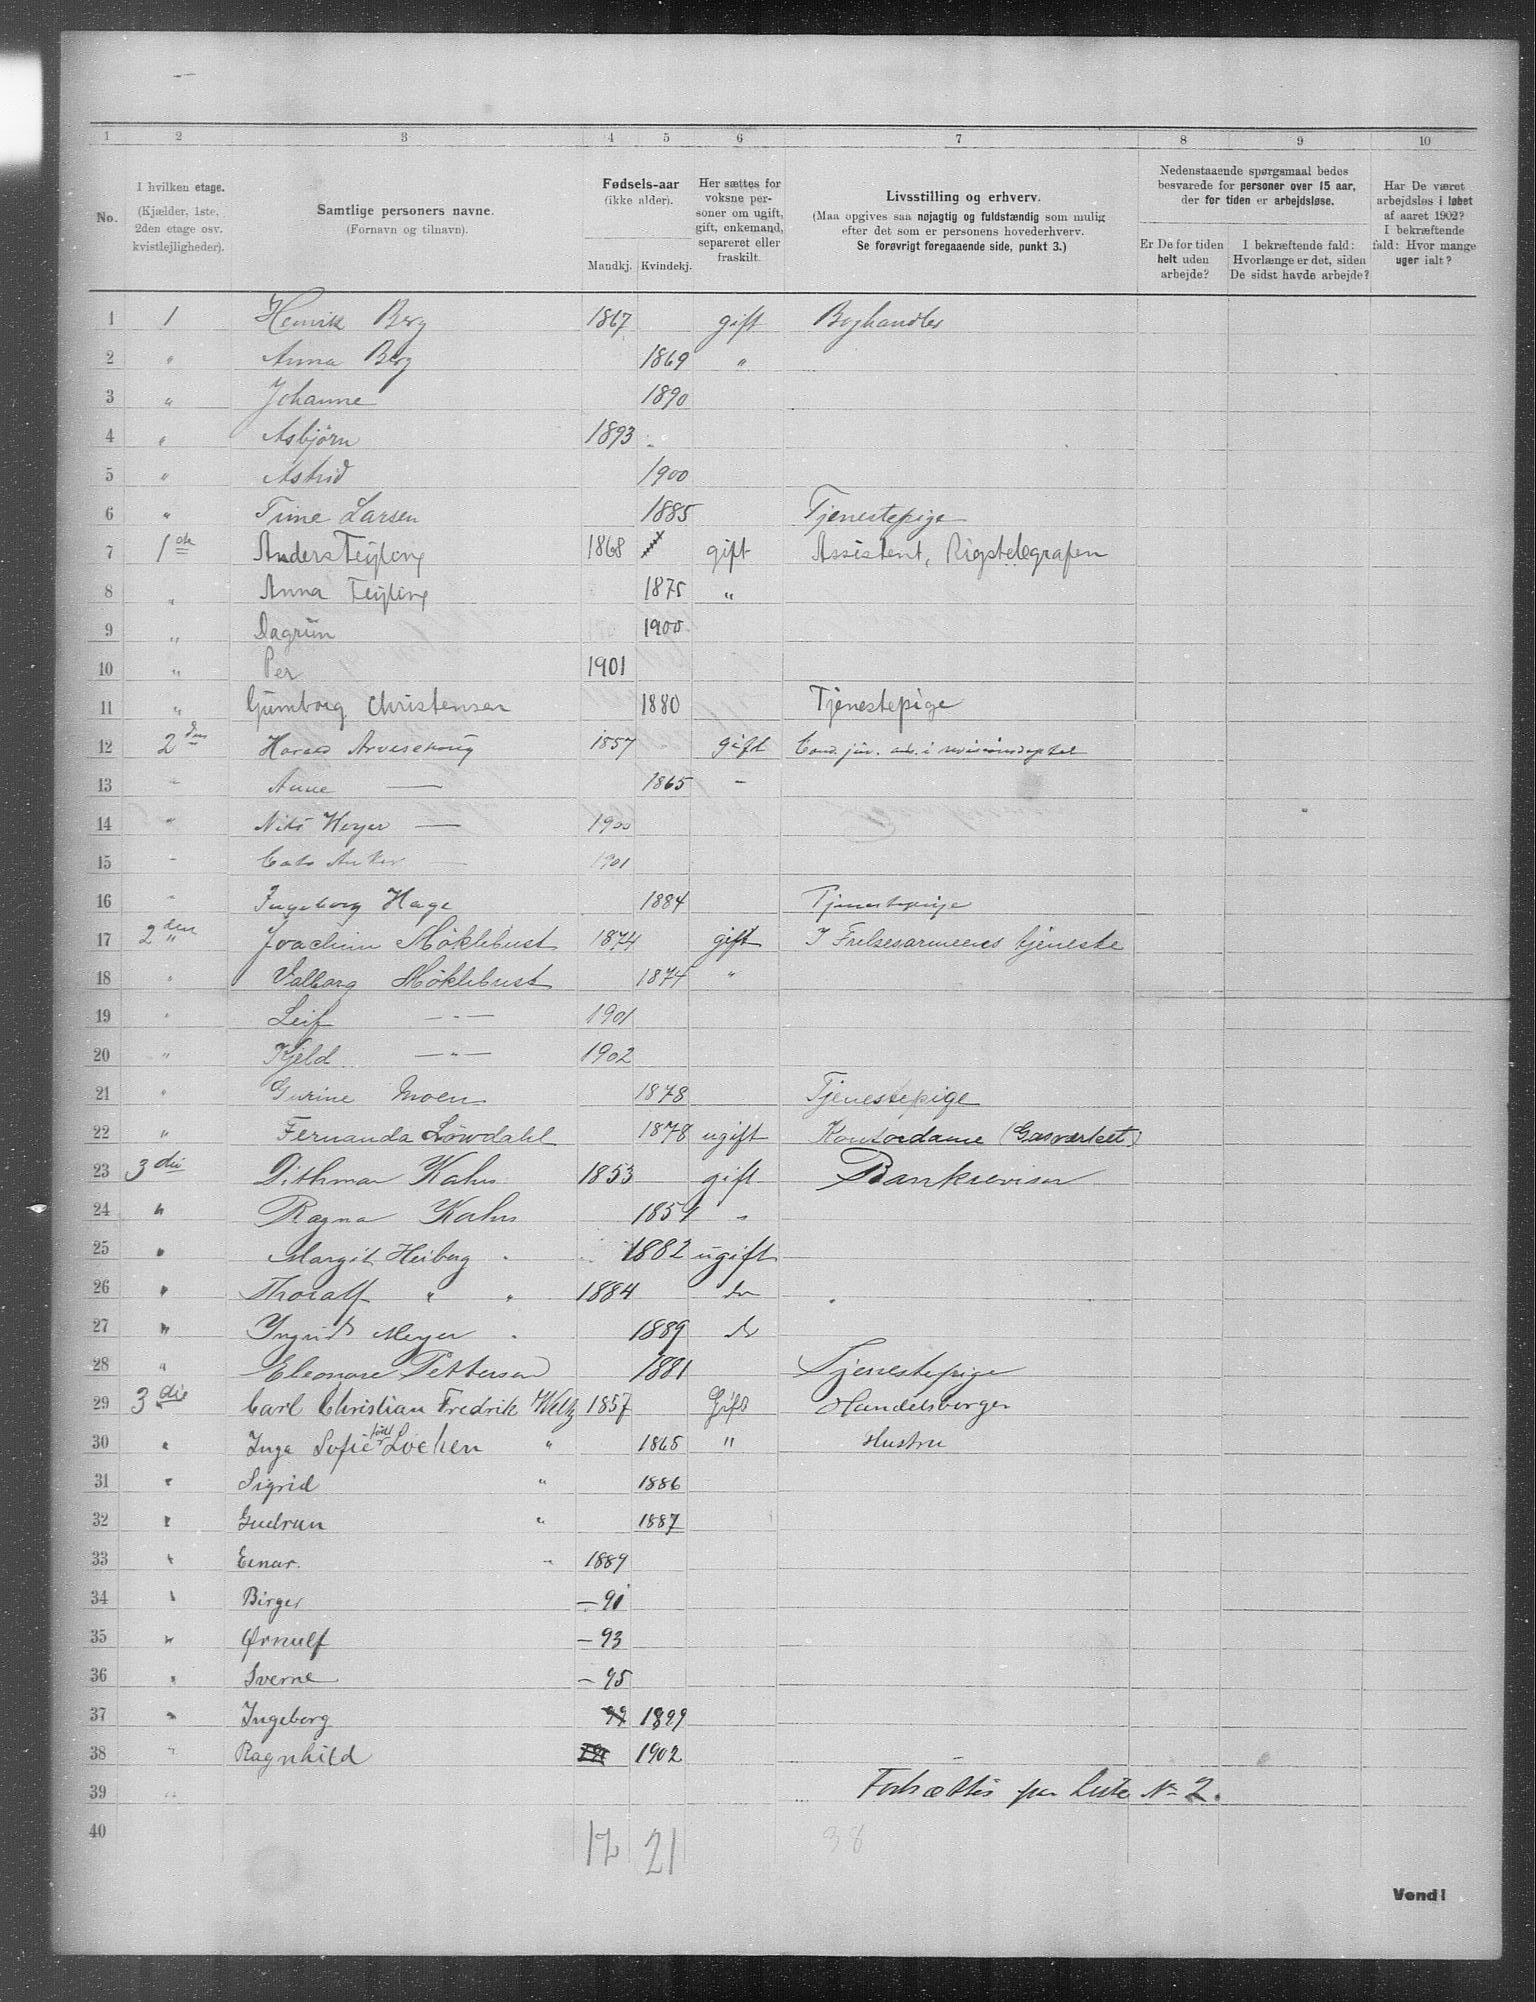 1 2 3 4 5 6 7 8 9 10
No.
I hvilken etage.
(Kjælder, 1ste,
2den etage osv.
kvistlejligheder).
Samtlige personers navne.
(Fornavn og tilnavn).
Fødsels-aar
(ikke alder).
Mandkj. Kvindekj.
Her sættes for
voksne per-
soner om ugift,
gift, enkemand,
separeret eller
fraskilt.
Livsstilling og erhverv.
(Maa opgives saa nøjagtig og fuldstændig som mulig
efter det som er personens hovederhverv.
Se forøvrigt foregaaende side, punkt 3.)
Nedenstaaende spørgsmaal bedes
besvarede for personer over 15 aar,
der for tiden er arbejdsløse.
Er De for tiden
helt uden
arbejde?
I bekræftende fald:
Hvorlænge er det, siden
De sidst havde arbejde?
Har De været
arbejdsløs i løbet
af aaret 1902?
I bekræftende
fald: Hvor mange
uger ialt?
1 1 Henrik Berg 1867 gift Boghandler
2 " Anna Berg 1869 "
3 " Johanne 1890
4 " Asbjørn 1893
5 " Astrid 1900
6 " Trine Larsen 1885 Tjenestepige
7 1ste Anders Tejling 1868 gift Assistent, Rigstelegrafen
8 " Anna Tejling 1875 "
9 " Dagrun 1900
10 " Per 1901
11 " Gunborg Christensen 1880 Tjenestepige
12 2den Harald 1857 gift
13 " Anne — 1865 "
14 " Nils Heyer — 1900
15 " Cato Anker — 1901
16 " Ingeborg Hage 1884 Tjenestepige
17 2den Joachim Møklebust 1874 gift I Frelsesarmeens tjeneste
18 " Valborg Møklebust 1874 "
19 " Leif —"— 1901
20 " Kjeld —"— 1902
21 " Gurine Moen 1878 Tjenestepige
22 " Fernanda Løwdahl 1878 ugift Kontordame (Gasværket)
23 3die Dithmar Kahrs 1853 gift Bankrevisor
24 " Ragna Kahrs 1851 "
25 " Margit Heiberg 1882 ugift
26 " Thoralf " " 1884 do
27 " Yngrid Meyer 1889 do
28 " Eleonore Pettersen 1881 Tjenestepige
29 3die Carl Christian Fredrik Weltz 1857 Gift Handelsborger
30 " Inga Sofie født Lochen " 1865 " Hustru
31 " Sigrid " 1886
32 " Gudrun " 1887
33 " Einar. " 1889
34 " Birger — 91
35 " Ørnulf — 93
36 " Sverre — 95
37 " Ingeborg 99 1899
38 " Ragnhild 1902
39 " Fortsættes paa Liste No 2.
40 17 21 38
Vend!